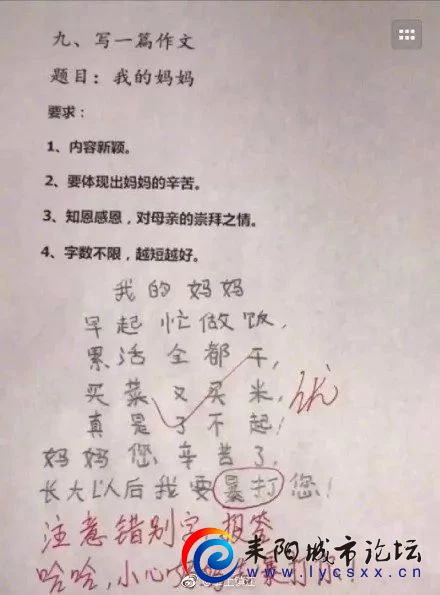 九、写一篇作文
题目：我的妈妈
要求：
1、内容新颖。
2、要体现出妈妈的辛苦。
3、知恩感恩，对母亲的崇拜之情。
4、字数不限，越短越好。
我的妈妈
早起忙做饭，
累活全都干，
买菜又买米，
优
真是了不起！
妈妈您辛苦了，
长大以后我要暴打您！
注意错别字 报答
哈哈，小心妈妈
耒阳城市论坛
www.lycsxx.cn